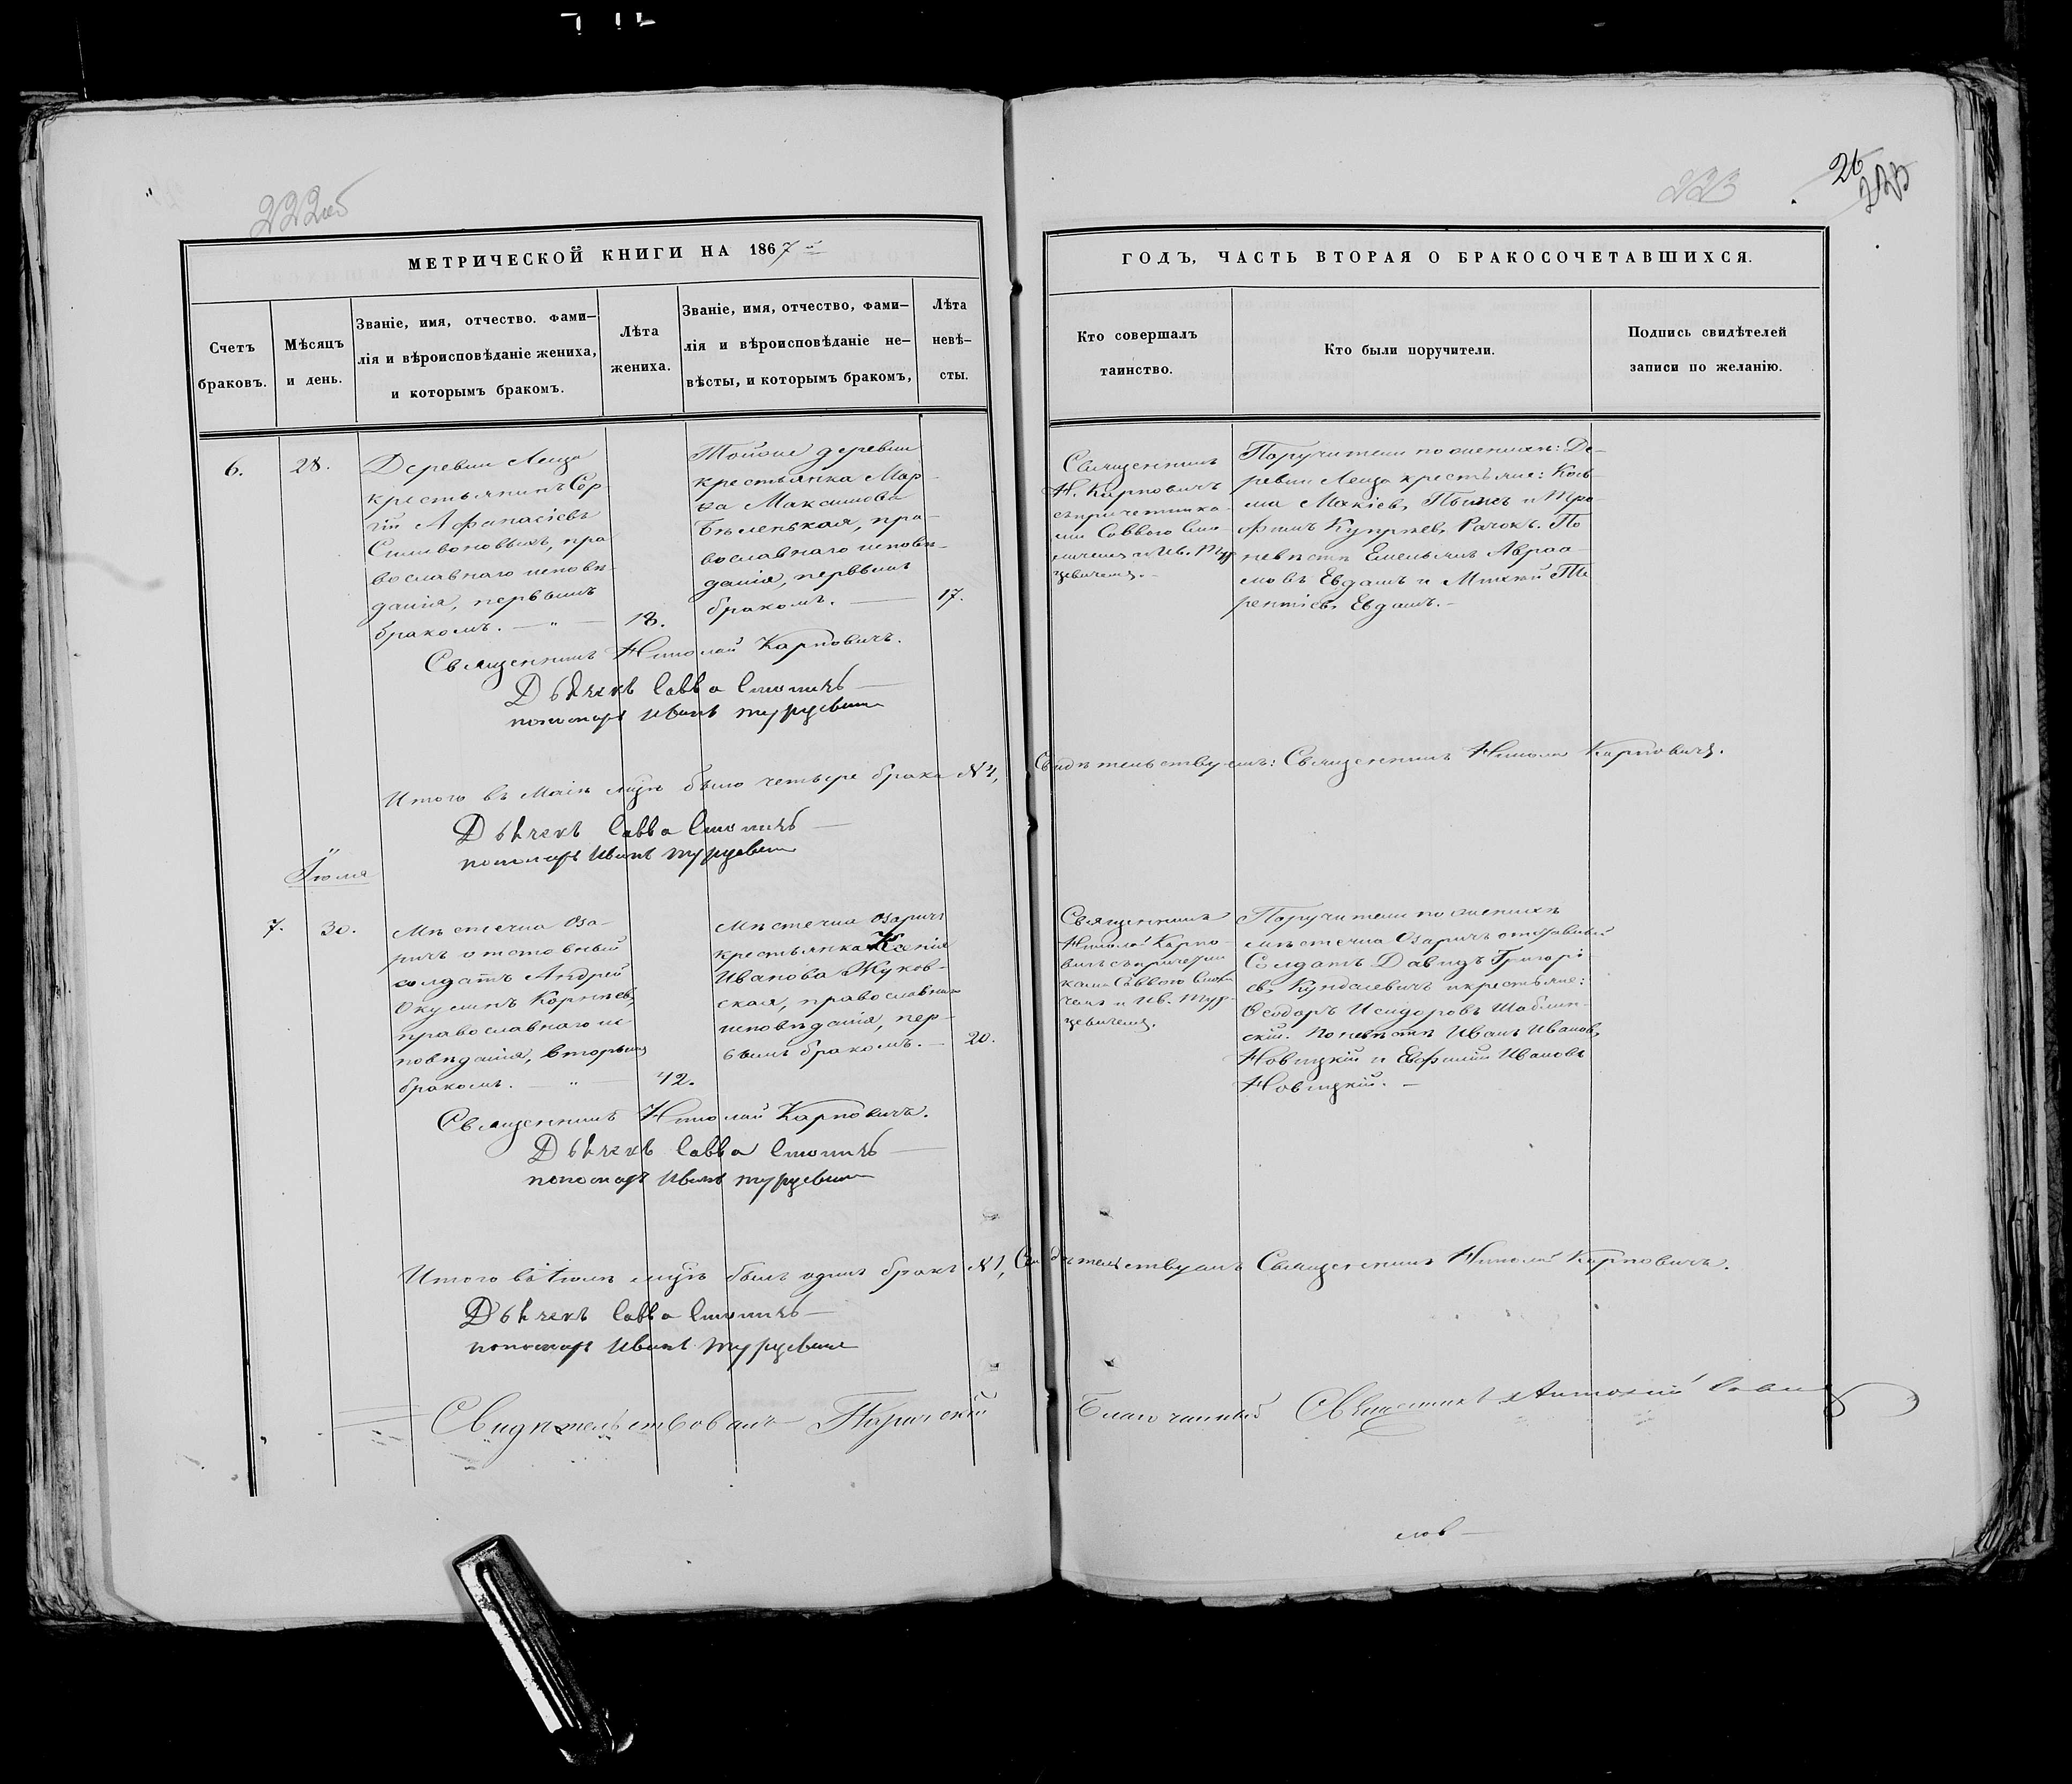 222об
МЕТРИЧЕСКОЙ КНИГИ НА 1867й
Счетъ
браковъ.
Мѣсяцъ
и день.
Званіе, имя, отчество. фами–
лія и вѣроисповѣданіе жениха,
и которымъ бракомъ.
Лѣта
жениха.
Званіе, имя, отчество, фами–
лія и вѣроисповѣданіе не–
вѣсты, и которымъ бракомъ,
Лѣта
невѣ–
сты.
6.
28.
Деревни Леща
крестьянинъ Сер
гій Афанасіевъ
пра
вославнаго исповѣ-
данія, первымъ
бракомъ. — " —
18.
Тойже деревни
крестьянка Мар
Максимова
Бѣленькая, пра-
вославнаго исповѣ-
данія, первымъ
бракомъ. —
17.
Священникъ Николай Карповичъ.
Дьячекъ Савва
пономарь Иванъ Турцевичъ
Итого въ Маіѣ мцѣ было четыре брака №4,
Дьячекъ Савва
пономарь Иванъ Турцевичъ
Іюля
7.
30.
Мѣстечка Оза-
ричъ отставный
солдатъ Андрей
православнаго ис-
повѣданія, вторымъ
бракомъ. — " —
42.
Мѣстечка Озаричъ
крестьянка Ксенія
Иванова Жуков-
ская, православнаго
исповѣданія, пер-
вымъ бракомъ. —
20.
Священникъ Николай Карповичъ.
Дьячекъ Савва
пономарь Иванъ Турцевичъ
Итого въ Іюлѣ мцѣ былъ одинъ бракъ №1,
Дьячекъ Савва
пономарь Иванъ Турцевичъ
Свидѣтельствовалъ Паричскій
223
26
ГОДЪ, ЧАСТЬ ВТОРАЯ О БРАКОСОЧЕТАВШИХСЯ.
Кто совершалъ
таинство.
Кто были поручители.
Подпись свидѣтелей
записи по желанію.
Священникъ
Н. Карповичъ
съ причетника-
ми Саввою
и Ив. Тур
цевичемъ. –
Поручители по женихѣ: Де-
ревни Леща крестьяне: Козь-
ма и Тро-
фимъ По
невѣстѣ Емельянъ Авраа-
мовъ Евдашъ и Михей Те
рентіевъ Евдашъ. –
Свидѣтельствуемъ: Священникъ Николай Карповичъ.
Священникъ
Николай Карпо-
вичъ съ причетни
ками Саввою
и Ив. Тур-
цевичемъ.
Поручители по женихѣ
мѣстечка Озаричъ отставный
Солдатъ Давидъ Григорі
евъ и крестьяне:
Ѳеодоръ Исидоровъ Шаблин-
скій. По невѣстѣ Иванъ Ивановъ
Новицкій и Евфимій Ивановъ
Новицкій. –
Свидѣтельствуемъ Священникъ Николай Карповичъ.
Благочинный Священникъ Антоній